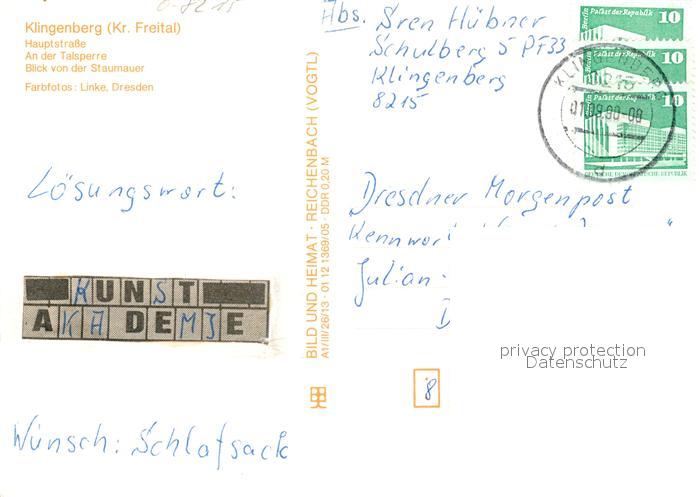 Klingenberg (Kr. Freital)
Hauptstraße
An der Talsperre
Blick von der Staumauer
Farbfotos: Linke, Dresden
Lösungswort:
KUNST
AKADEMIE
Wunsch: Schlafsack
BILD UND HEIMAT · REICHENBACH (VOGTL)
A1/III/26/13 · 01 12 1369/05 · DDR 0,20 M
Abs. Sren Hübner
Schulberg 5 PF33
Klingenberg
8215
Berlin Palast der Republik 10
Berlin Palast der Republik 10
Berlin Palast der Republik 10
DEUTSCHE DEMOKRATISCHE REPUBLIK
KLINGENBERG
8215
01.09.90-00
Dresdner Morgenpost
Kennwort
Julian-
privacy protection
Datenschutz
8